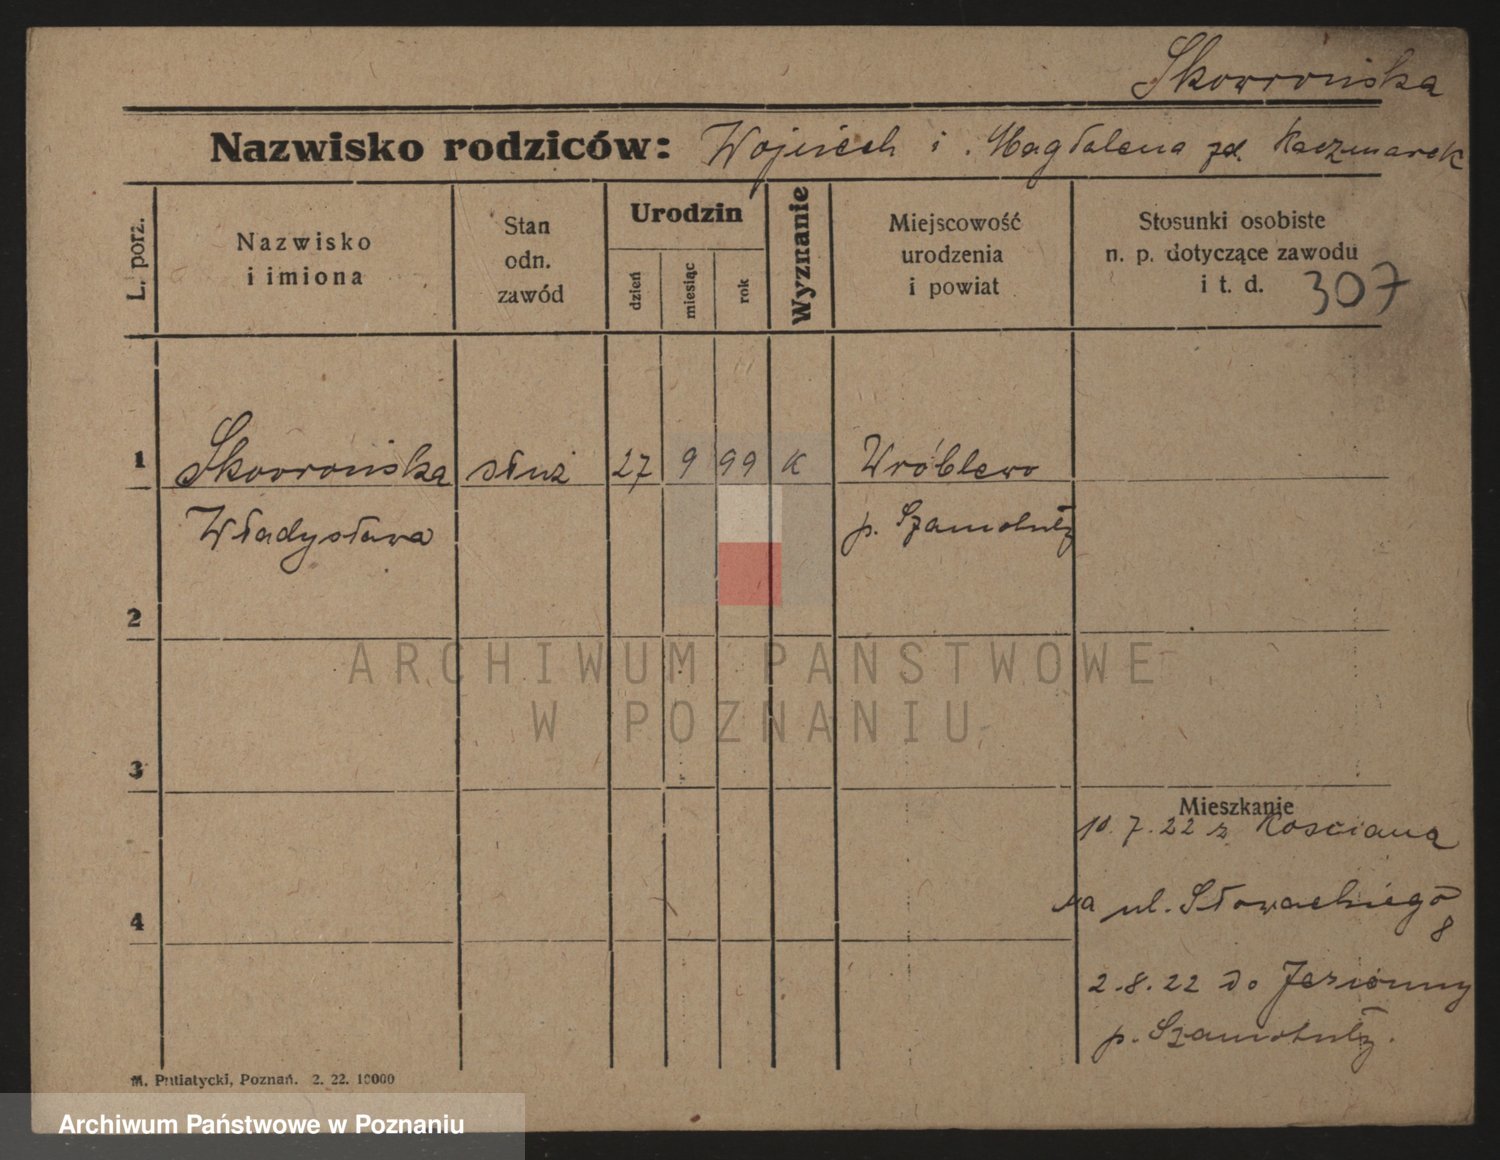 Skowrońska
Nazwisko rodziców: Wojciech i Magdalena zd. Kaczmarek
L. porz.
Nazwisko
i imiona
Stan
odn.
zawód
Urodzin
dzień
miesiąc
rok
Wyznanie
Miejscowość
urodzenia
i powiat
Stosunki osobiste
n. p. dotyczące zawodu
i t. d. 307
1 Skowrońska służ 27 9 99 K Wróblewo
Władysława p. Szamotuły
2
ARCHIWUM PAŃSTWOWE
W POZNANIU
3
Mieszkanie
10.7.22 z Kościana
na ul. Słowackiego
8
4
2.8.22 do
p. Szamotuły.
M. Putiatycki, Poznań. 2. 22. 10000
Archiwum Państwowe w Poznaniu